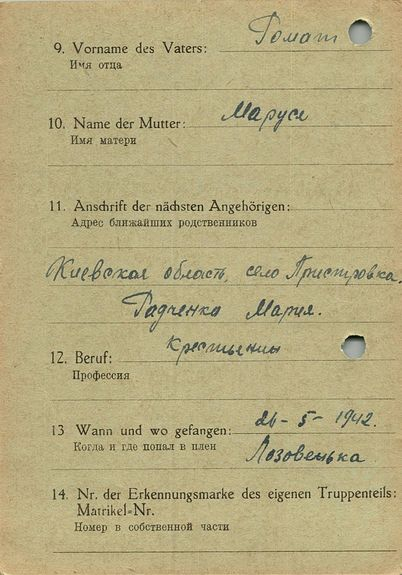 9. Vorname des Vaters: Гомат
Имя отца
10. Name der Mutter: Маруся
Имя матери
11. Anschrift der nächsten Angehörigen:
Адрес ближайших родственников
Киевская область, село Пристровка.
Радченко Мария.
12. Beruf: крестьянин
Профессия
13 Wann und wo gefangen: 26-5-1942.
Когда и где попал в плен Лозовенька
14. Nr. der Erkennungsmarke des eigenen Truppenteils:
Matrikel=Nr.
Номер в собственной части